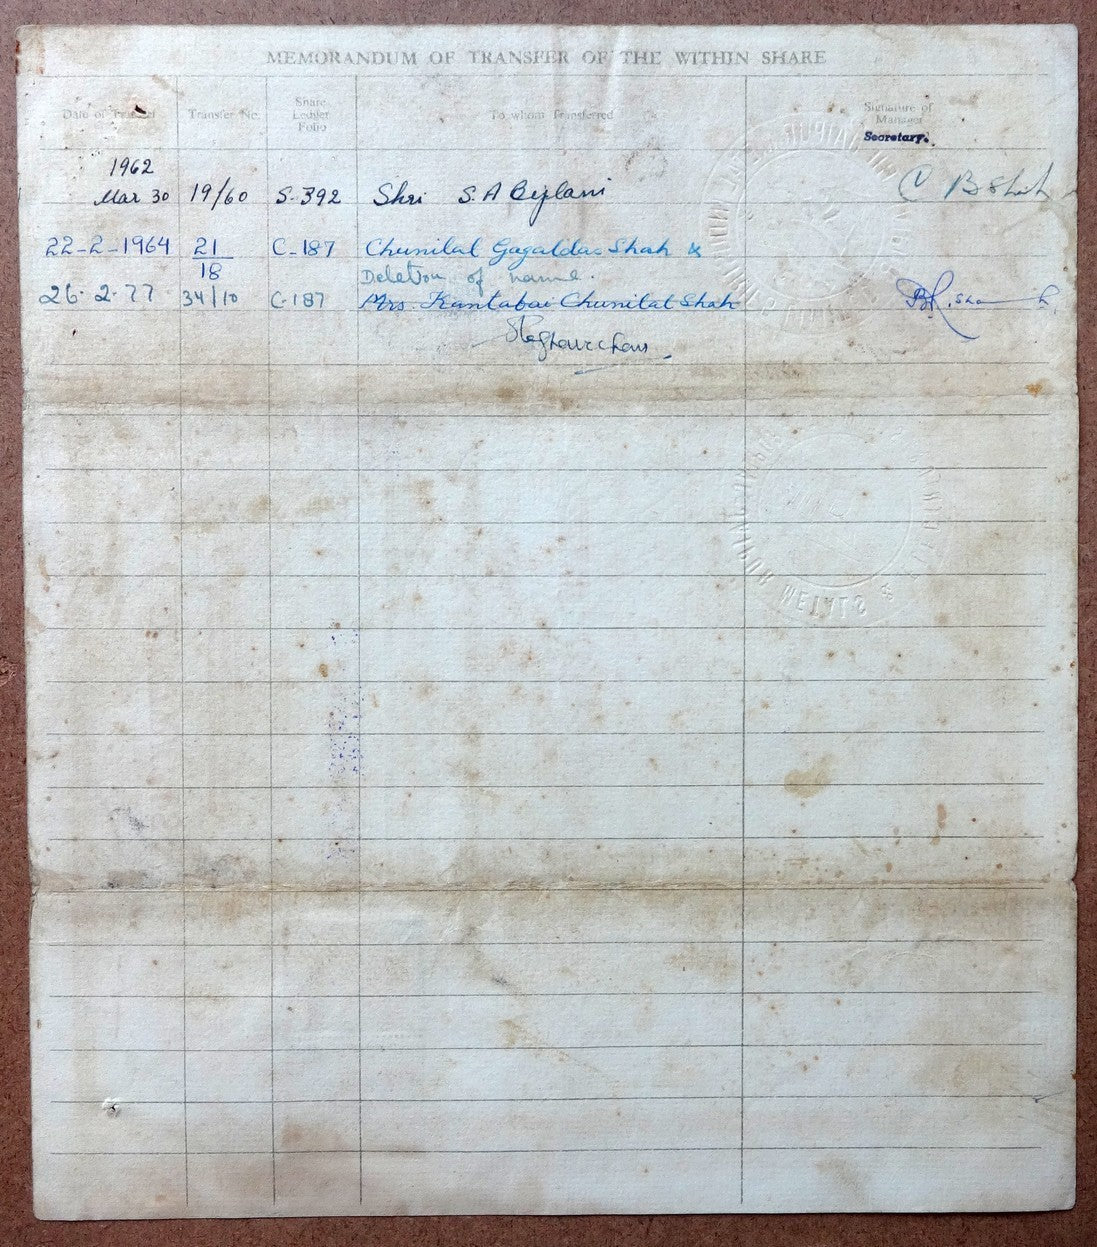 MEMORANDUM OF TRANSFER OF THE WITHIN SHARE
Date of Transfer Transfer No. Share Ledger Folio To whom Transferred Signature of Manager
Secretary.
1962
Mar 30 19/60 S-392 Shri S. A
22-2-1964 21/18 C-187 Chunilal Shah &
Deletion of name.
26-2-77 34/10 C-187 Mrs. Kantabai Chunilal Shah